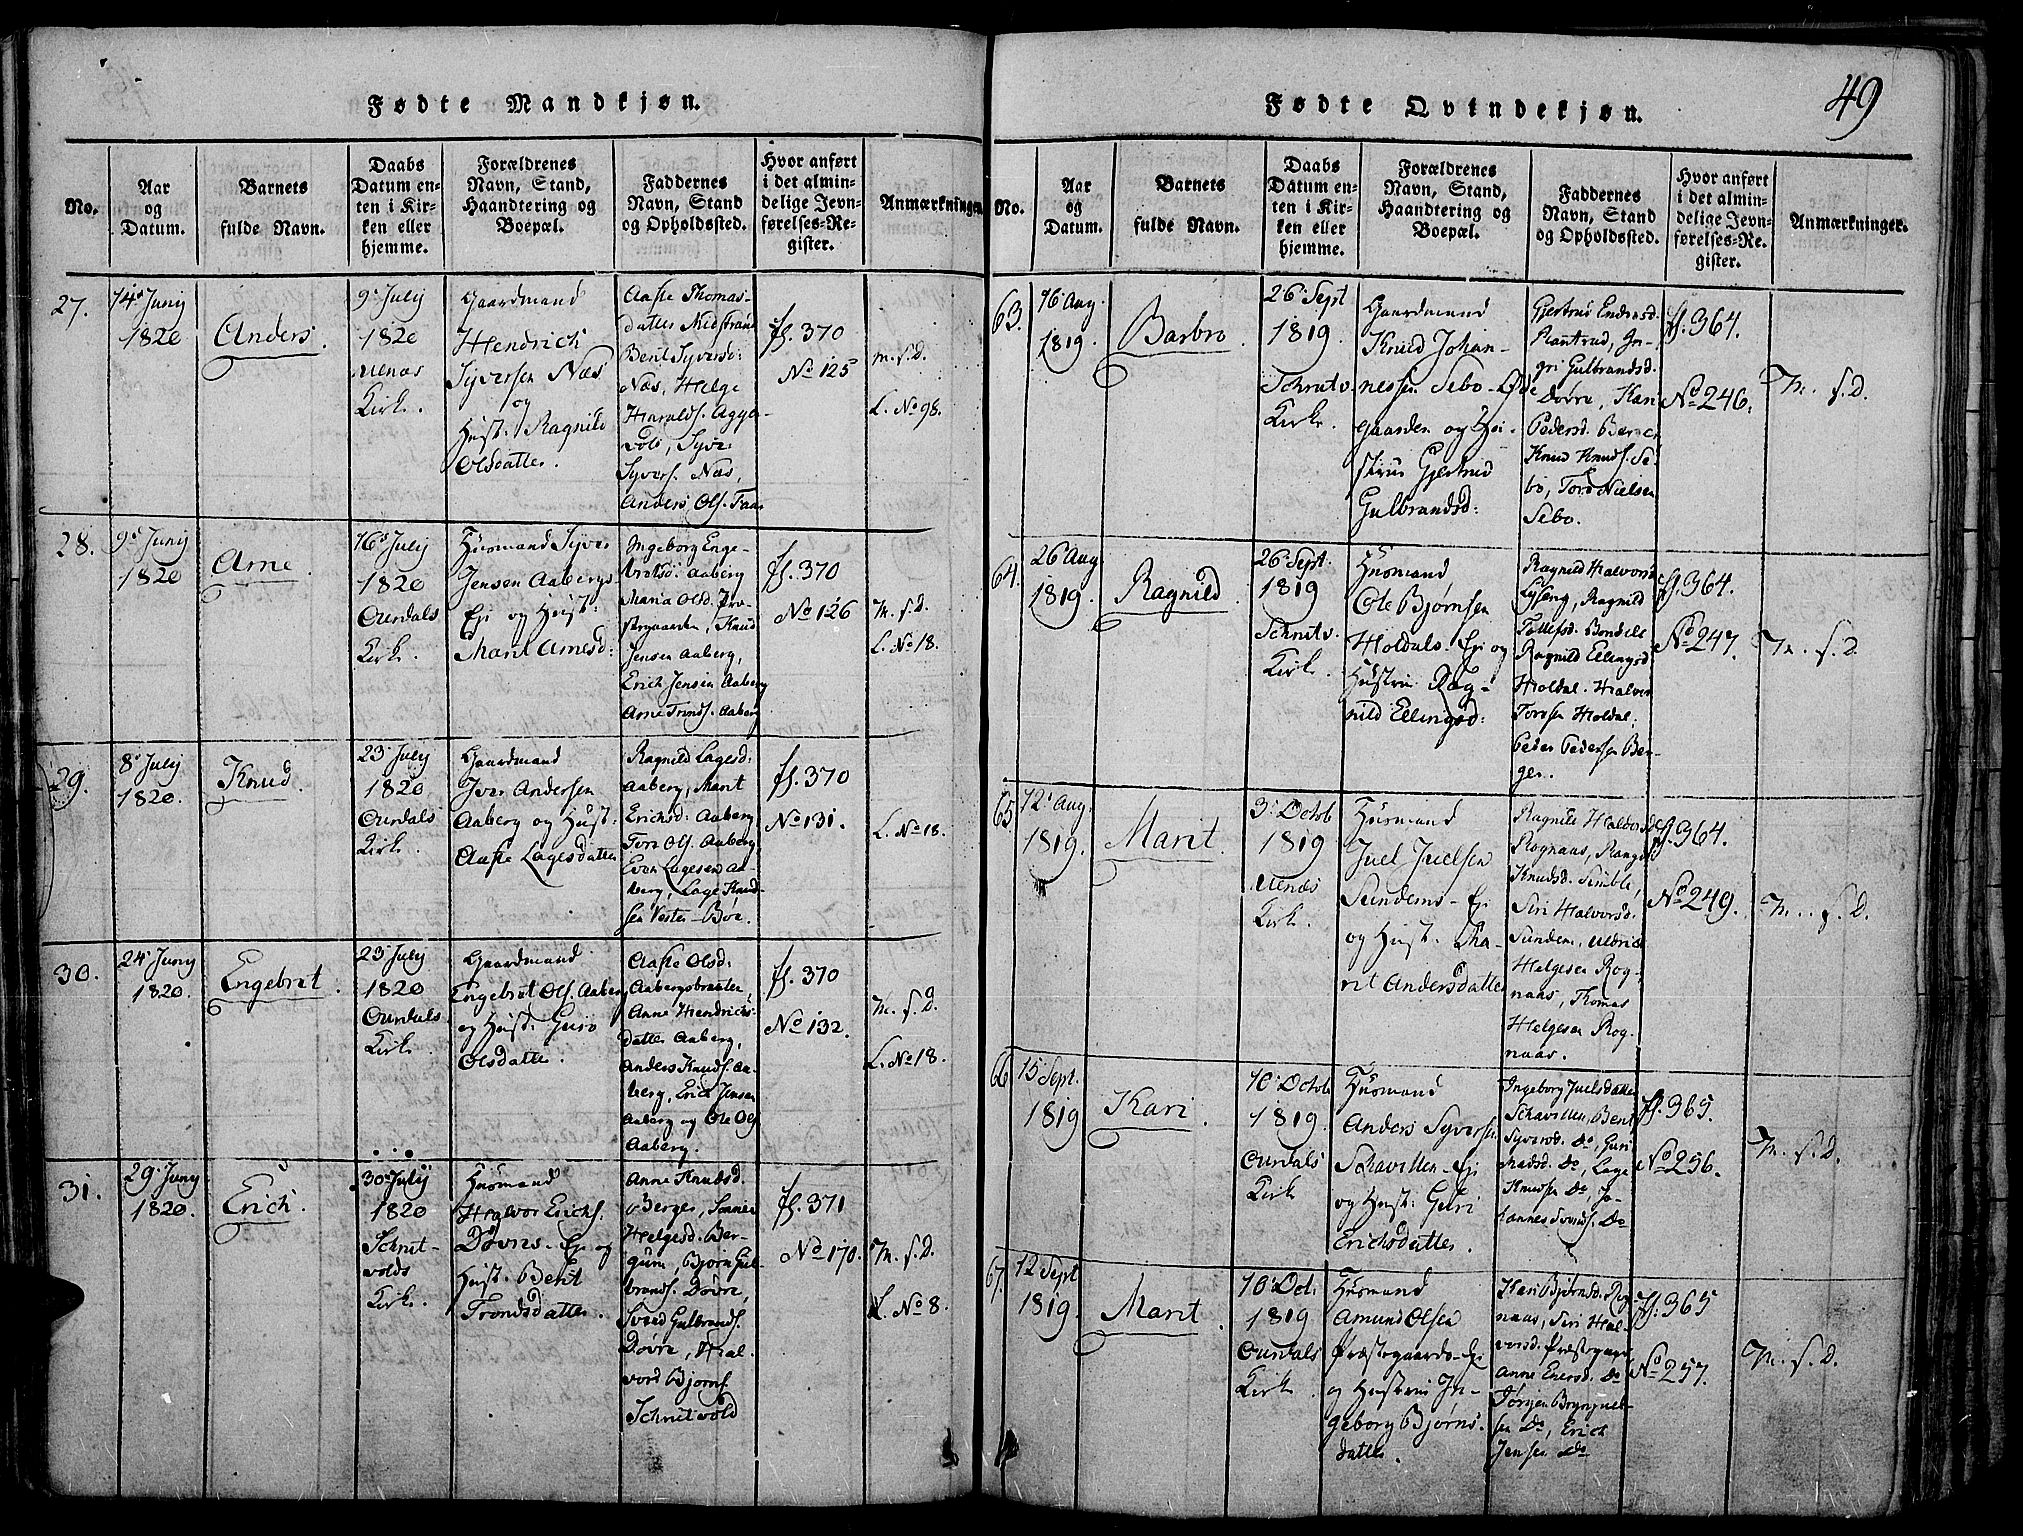 Fødte Mandkjøn.
No.
Aar
og
Datum.
Barnets
fulde Navn.
Daabs
Datum en-
ten i Kir-
ken eller
hjemme.
Forældrenes
Navn, Stand,
Haandtering og
Boepæl.
Faddernes
Navn, Stand
og Opholdssted.
Hvor anført
i det almin-
delige Jevn-
førelses-Re-
gister.
Anmærkninger.
27.
14de Juny
1820
Anders.
9de July
1820
Ulnæs
Kirke.
Gaardmand
Hendrich
Syversen Næs
og
Hust: Ragnild
Olsdatter.
Aaste Thomas-
datter Midstrand
Bent Syversd:
Næs, Helge
Haralds. Agge-
Syver
Syvers. Næs,
Anders Ols.
fl. 370
No 125
m. f. D.
L. No 98.
28.
9de Juny
1820
Arne.
16de July
1820
Ourdals
Kirke.
Huusmand Syver
Jensen Aabergs
Eje og Hust:
Marit Arnesd:
Ingeborg Enge-
bretsd: Aaberg
Maria Olsd. Præ-
stegaarden, Knud
Jensen Aaberg,
Erich Jensen Aaberg
Arne Tronds. Aaberg
fl. 370
No 126
m. f. D.
L. No 18.
29.
8de July
1820.
Knud.
23 July
1820
Ourdals
Kirke.
Gaardmand
Iver Andersen
Aaberg og Hust:
Aaste Lagesdatter
Ragnild Lagesd:
Aaberg, Marit
Erichsd: Aaberg
Tore Ols. Aaberg
Even Lagesen Aa-
berg, Lage Knud-
sen Vester-Bøe.
fl. 370
No 131.
L. No 18.
30.
24de Juny
1820.
Engebret.
23 July
1820
Ourdals
Kirke.
Gaardmand
Engebret Ols. Aaberg
og Hust: Guro
Olsdatter.
Aaste Olsd:
Aabergsbraaten,
Anne Hendrichs-
datter Aaberg,
Anders Knuds. Aa-
berg, Erich Jensen
Aaberg og Ole Ols.
Aaberg.
fl. 370
No 132.
m. f. D.
L. No 18.
31.
29de Juny
1820.
Erich.
30de July
1820
Schrut-
volds
Kirke.
Huusmand
Halvor Erichs.
Døvres-Eje og
Hust. Berit
Trondsdatter.
Anne Knudsd.
Berger,
Helgesd. Ber-
gum, Bjørn Gul-
brands. Døvre,
Svend Gulbrands.
Døvre, Hal-
vord Bjørns.
Schrutvold
fl. 371
No 170.
m. f. D.
L. No 8.
Fødte Qvindekjøn.
49
No.
Aar
og
Datum.
Barnets
fulde Navn.
Daabs
Datum en-
ten i Kir-
ken eller
hjemme.
Forældrenes
Navn, Stand,
Haandtering og
Boepæl.
Faddernes
Navn, Stand
og Opholdssted.
Hvor anført
i det almin-
delige Jevn-
førelses-Re-
gister.
Anmærkninger.
63.
16 Aug.
1819.
Barbro.
26de Sept
1819.
Schrutv.
Kirke.
Gaardmand
Knud Johan-
nessen Sebo-Øde
gaarden og Hu-
strue Gjertrud
Gulbrandsd:
Gjertrud Endresd.
In-
gri Gulbrandsd.
Døvre, Kari
Pedersd. Berger
Knud Knuds. Se-
bo, Tord Nielsen
Sebo.
fl. 364.
No 246.
m. f. D.
64.
26 Aug.
1819.
Ragnild.
26de Sept.
1819
Schrutv.
Kirke.
Huusmand
Ole Bjørnsen
Holdals-Eje og
Hustrue Rag-
nild Ellingsd:
Ragnild Halvorsd.
Lyseng, Ragnild
Tollefsd. Bondele
Ragnild Ellingsd.
Holdal. Halvor
Torssen Holdal.
Peder Pedersen Ber-
ger.
fl. 364.
No 247.
m. f. D.
65.
12de Aug.
1819.
Marit.
3de Octob
1819
Ulnæs
Kirke.
Huusmand
Juel Juelsen
Sundems-Eje
og Hust. Ma-
rit Andersdatter
Ragnild Halvorsd.
Rognaas, Rangdi
Knudsd. Semble,
Siri Halvorsd.
Sundem, Uldrich
Helgesen Rog-
naas, Thomas
Helgesen Rog-
naas.
fl. 364.
No 249.
m. f. D.
66
15 Sept.
1819
Kari.
10de Octob
1819.
Ourdals
Kirke
Huusmand
Anders Syversen
Schavellen-Eje
og Hust: Guri
Erichsdatter.
Ingeborg Juelsdatter
Schavellen, Bent
Syversd. Do, Guri
Madsd. Do, Lage
Knudsen Do, Jo-
hannes Svends. Do
fl. 365.
No 256.
m. f. D.
67.
12 Sept
1819.
Marit.
10de Oct:
1819
Ourdals
Kirke.
Huusmand
Amund Olsen
Præstegaards-Eje
og Hustrue In-
geborg Bjørns-
datter.
Kari Bjørnsd. Rog-
naas, Siri Hal-
vorsd. Præstegaard,
Anne Enersd. Do
Jørgen Brynjuel-
sen Do, Erich
Jensen Do
fl. 365
No 257.
m. f. D.